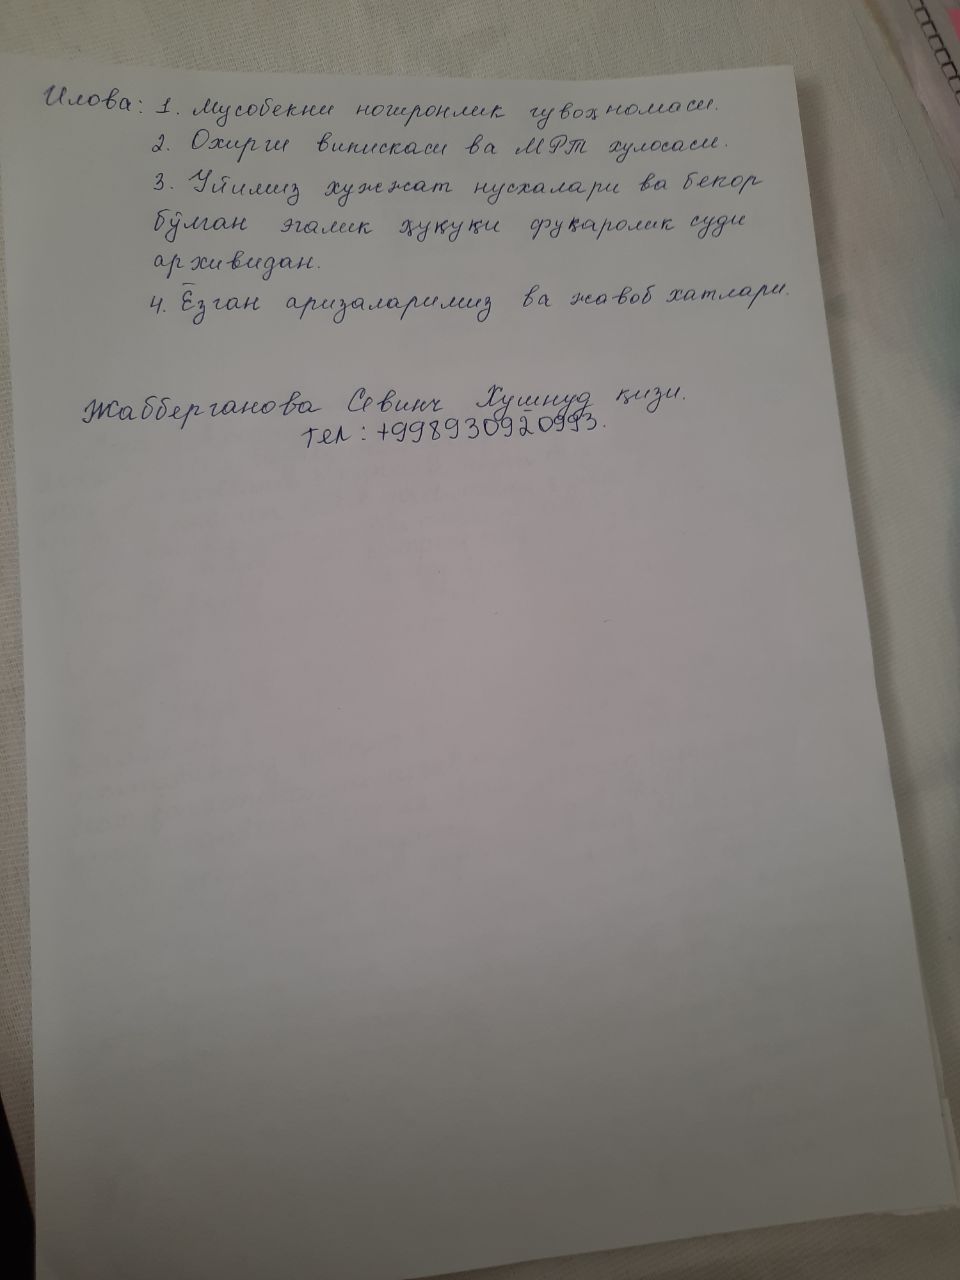 Илова: 1. Мусобекни ногиронлик гувоҳномаси.
2. Охирги випискаси ва МРТ хулосаси.
3. Уйимиз хужжат нусхалари ва бекор
бўлган эгалик ҳуқуқи фуқаролик суди
архивидан.
4. Ёзган аризаларимиз ва жавоб хатлари.
Жабберганова Севинч Хушнуд қизи.
тел: +998930920993.